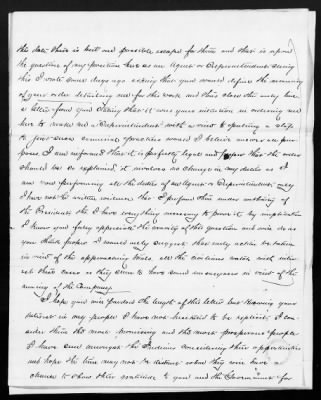 this date there is but one possible escape for them and that is upon
the question of my position here as an Agent or Superintendent during
this I wrote some days ago asking that you would define the meaning
of your order detailing me for this work and this alone the only
a letter from you stating that it was your intention in ordering me
here to make me a Superintendent with a view to putting a stop
to just such criminal practices would I believe answer all pur-
poses. I am informed that it is perfectly legal and proper that the order
should be so explained, it involves no change in my duties as I
am now performing all the duties of an Agent or Superintendent only
I have not the written evidence that I perform this under authority of
the President tho I have everything necessary to prove it by implication
I know you fully appreciate the gravity of this question and will do as
you think proper I would only suggest that early action be taken
in view of the approaching trials all the civilians watch with inter-
est these cases as they seem to have some uneasyness in view of the
coming of the Company.
I hope you will pardon the length of this letter but knowing your
interest in my people I have not hesitated to be explicit. I con-
sider them the most promising and the most prosperous people
I have seen amongst the Indians considering their opportunities
and hope the time may not be distant when they will have
chance to show their gratitude to you and the Government for